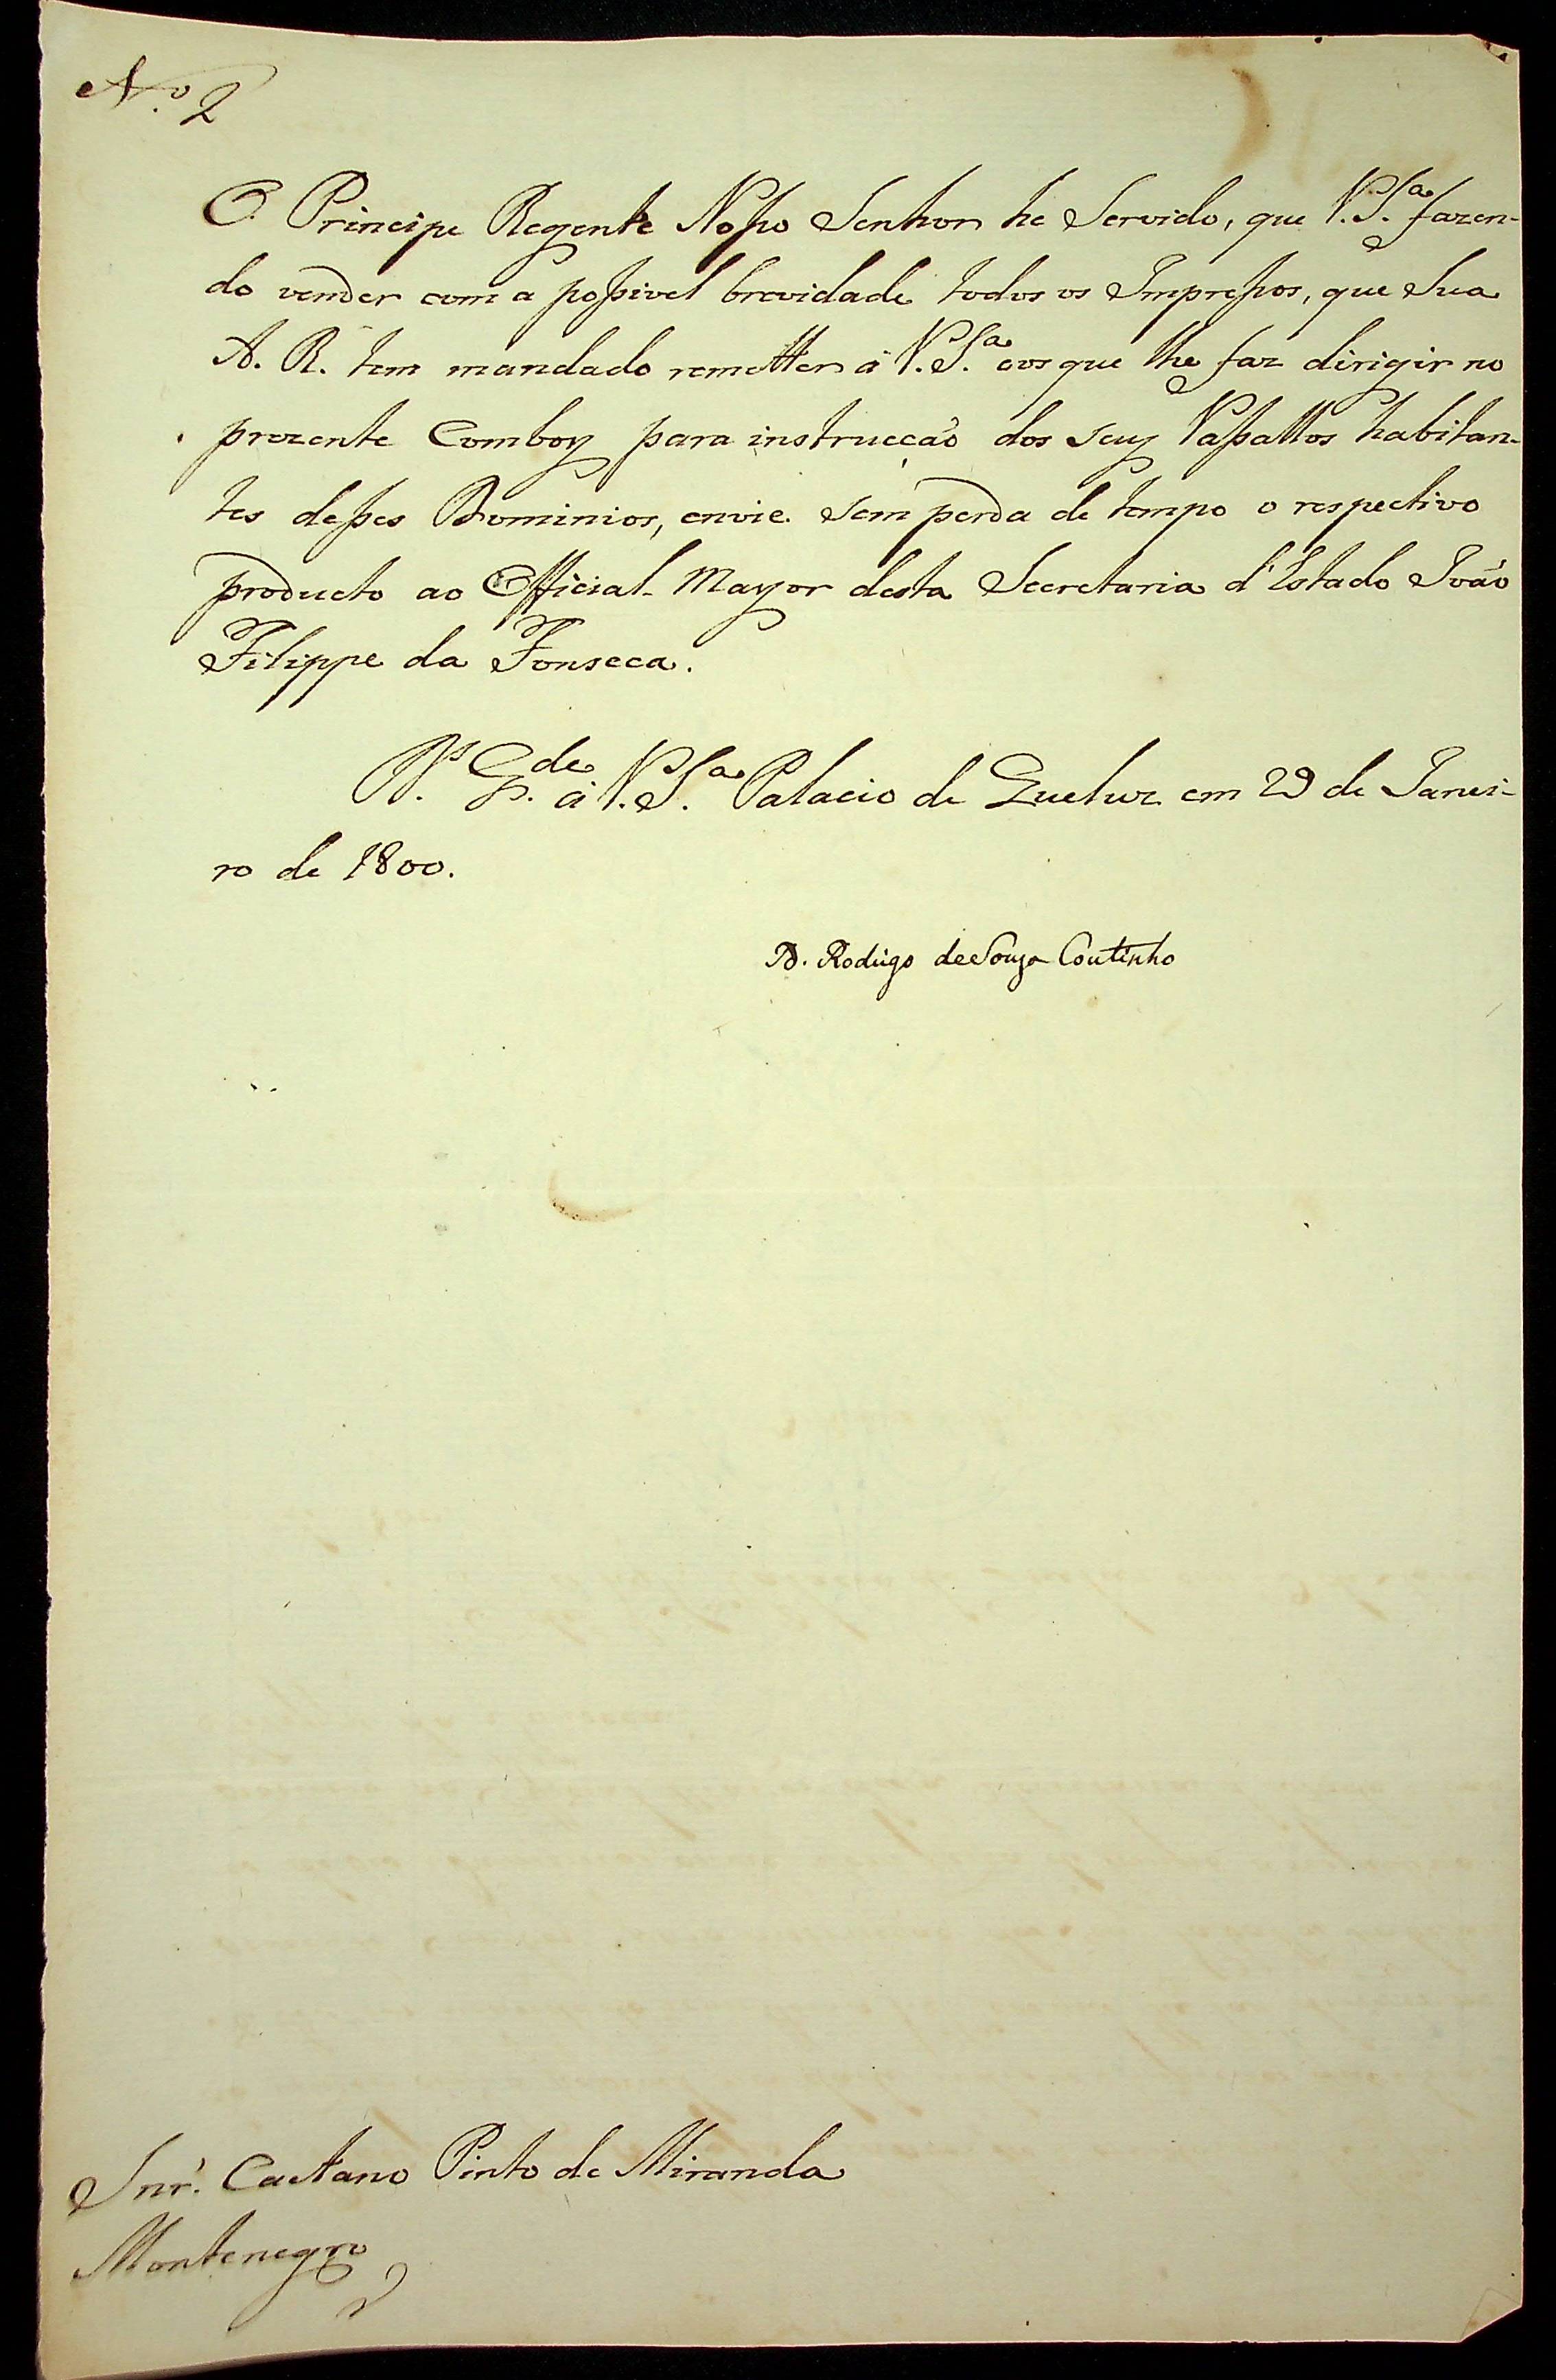 N.º 2
O Principe Regente Nosso Senhor he Servido, que V. S.ª fazen-
do vender com a possivel brevidade todos os Impressos, que Sua
A. R. tem mandado remetter á V. S.ª e os que lhe faz dirigir no
prezente Comboy para instrucção dos seus Vassallos habitan-
tes desses Dominios, envie sem perda de tempo o respectivo
producto ao Official Mayor desta Secretaria d'Estado João
Filippe da Fonseca.
D.s G.de á V. S.ª Palacio de Queluz em 29 de Janei-
ro de 1800.
D. Rodrigo de Souza Coutinho
Snr. Caetano Pinto de Miranda
Montenegro